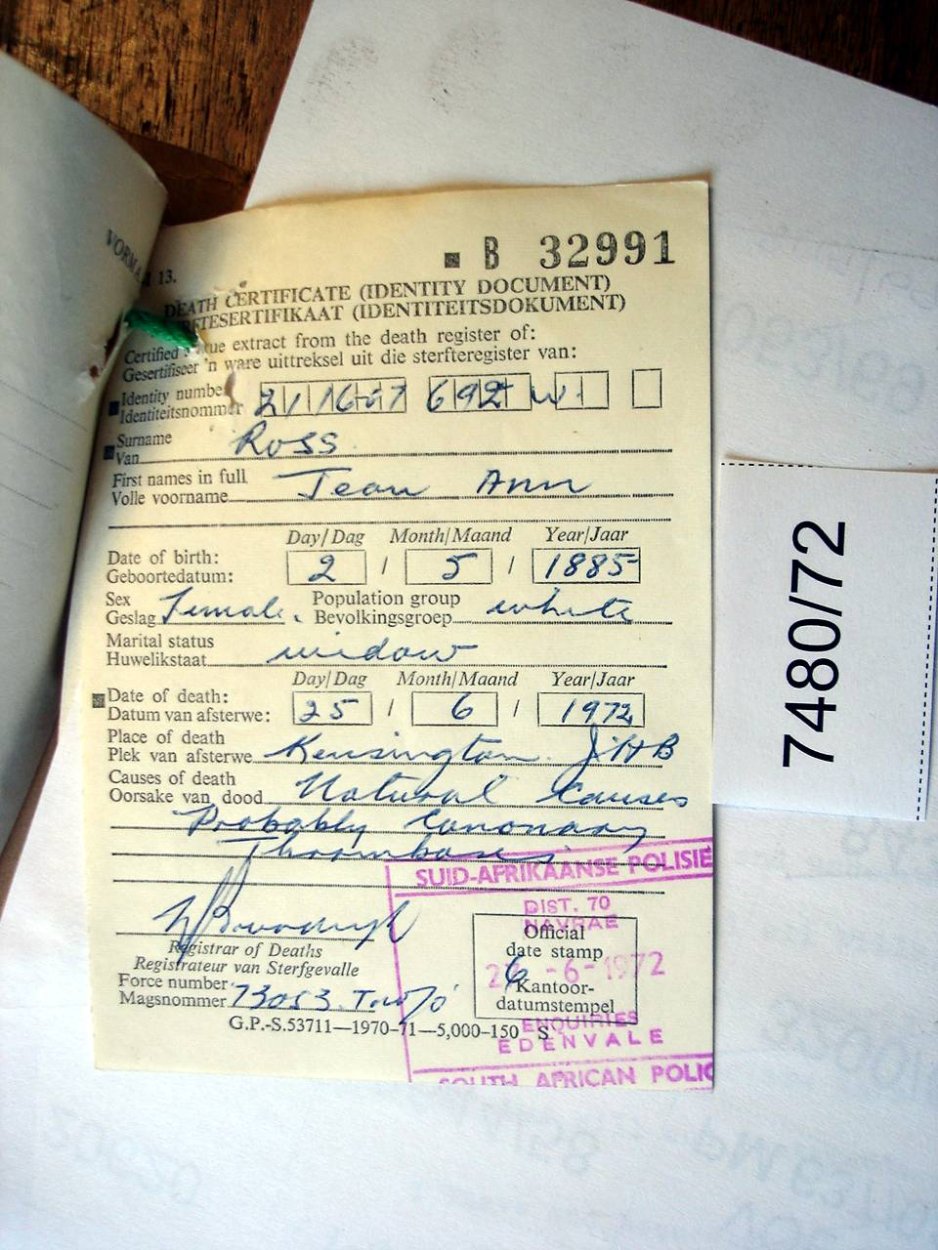 B 32991
13.
DEATH CERTIFICATE (IDENTITY DOCUMENT)
(IDENTITEITSDOKUMENT)
Certified true extract from the death register of:
Gesertifiseer 'n ware uittreksel uit die sterfteregister van:
Identity number
Identiteitsnommer
Surname
Van Ross
First names in full
Volle voorname Jean Ann
Day/Dag Month/Maand Year/Jaar
Date of birth:
Geboortedatum: 2 / 5 / 1885
Sex Population group
Geslag Female. Bevolkingsgroep white
Marital status
Huwelikstaat widow
Day/Dag Month/Maand Year/Jaar
Date of death:
Datum van afsterwe: 25 / 6 / 1972
Place of death
Plek van afsterwe Kensington JHB
Causes of death
Oorsake van dood Natural Causes
Probably Coronary
Thrombosis.
SUID-AFRIKAANSE POLISIE
DIST. 70
NAVRAE
Official
date stamp
-6-1972
Kantoor-
datumstempel
ENQUIRIES
EDENVALE
SOUTH AFRICAN POLIC
Registrar of Deaths
Registrateur van Sterfgevalle
Force number
Magsnommer 73053
G.P.-S.53711—1970-71—5,000-150 S
7480/72